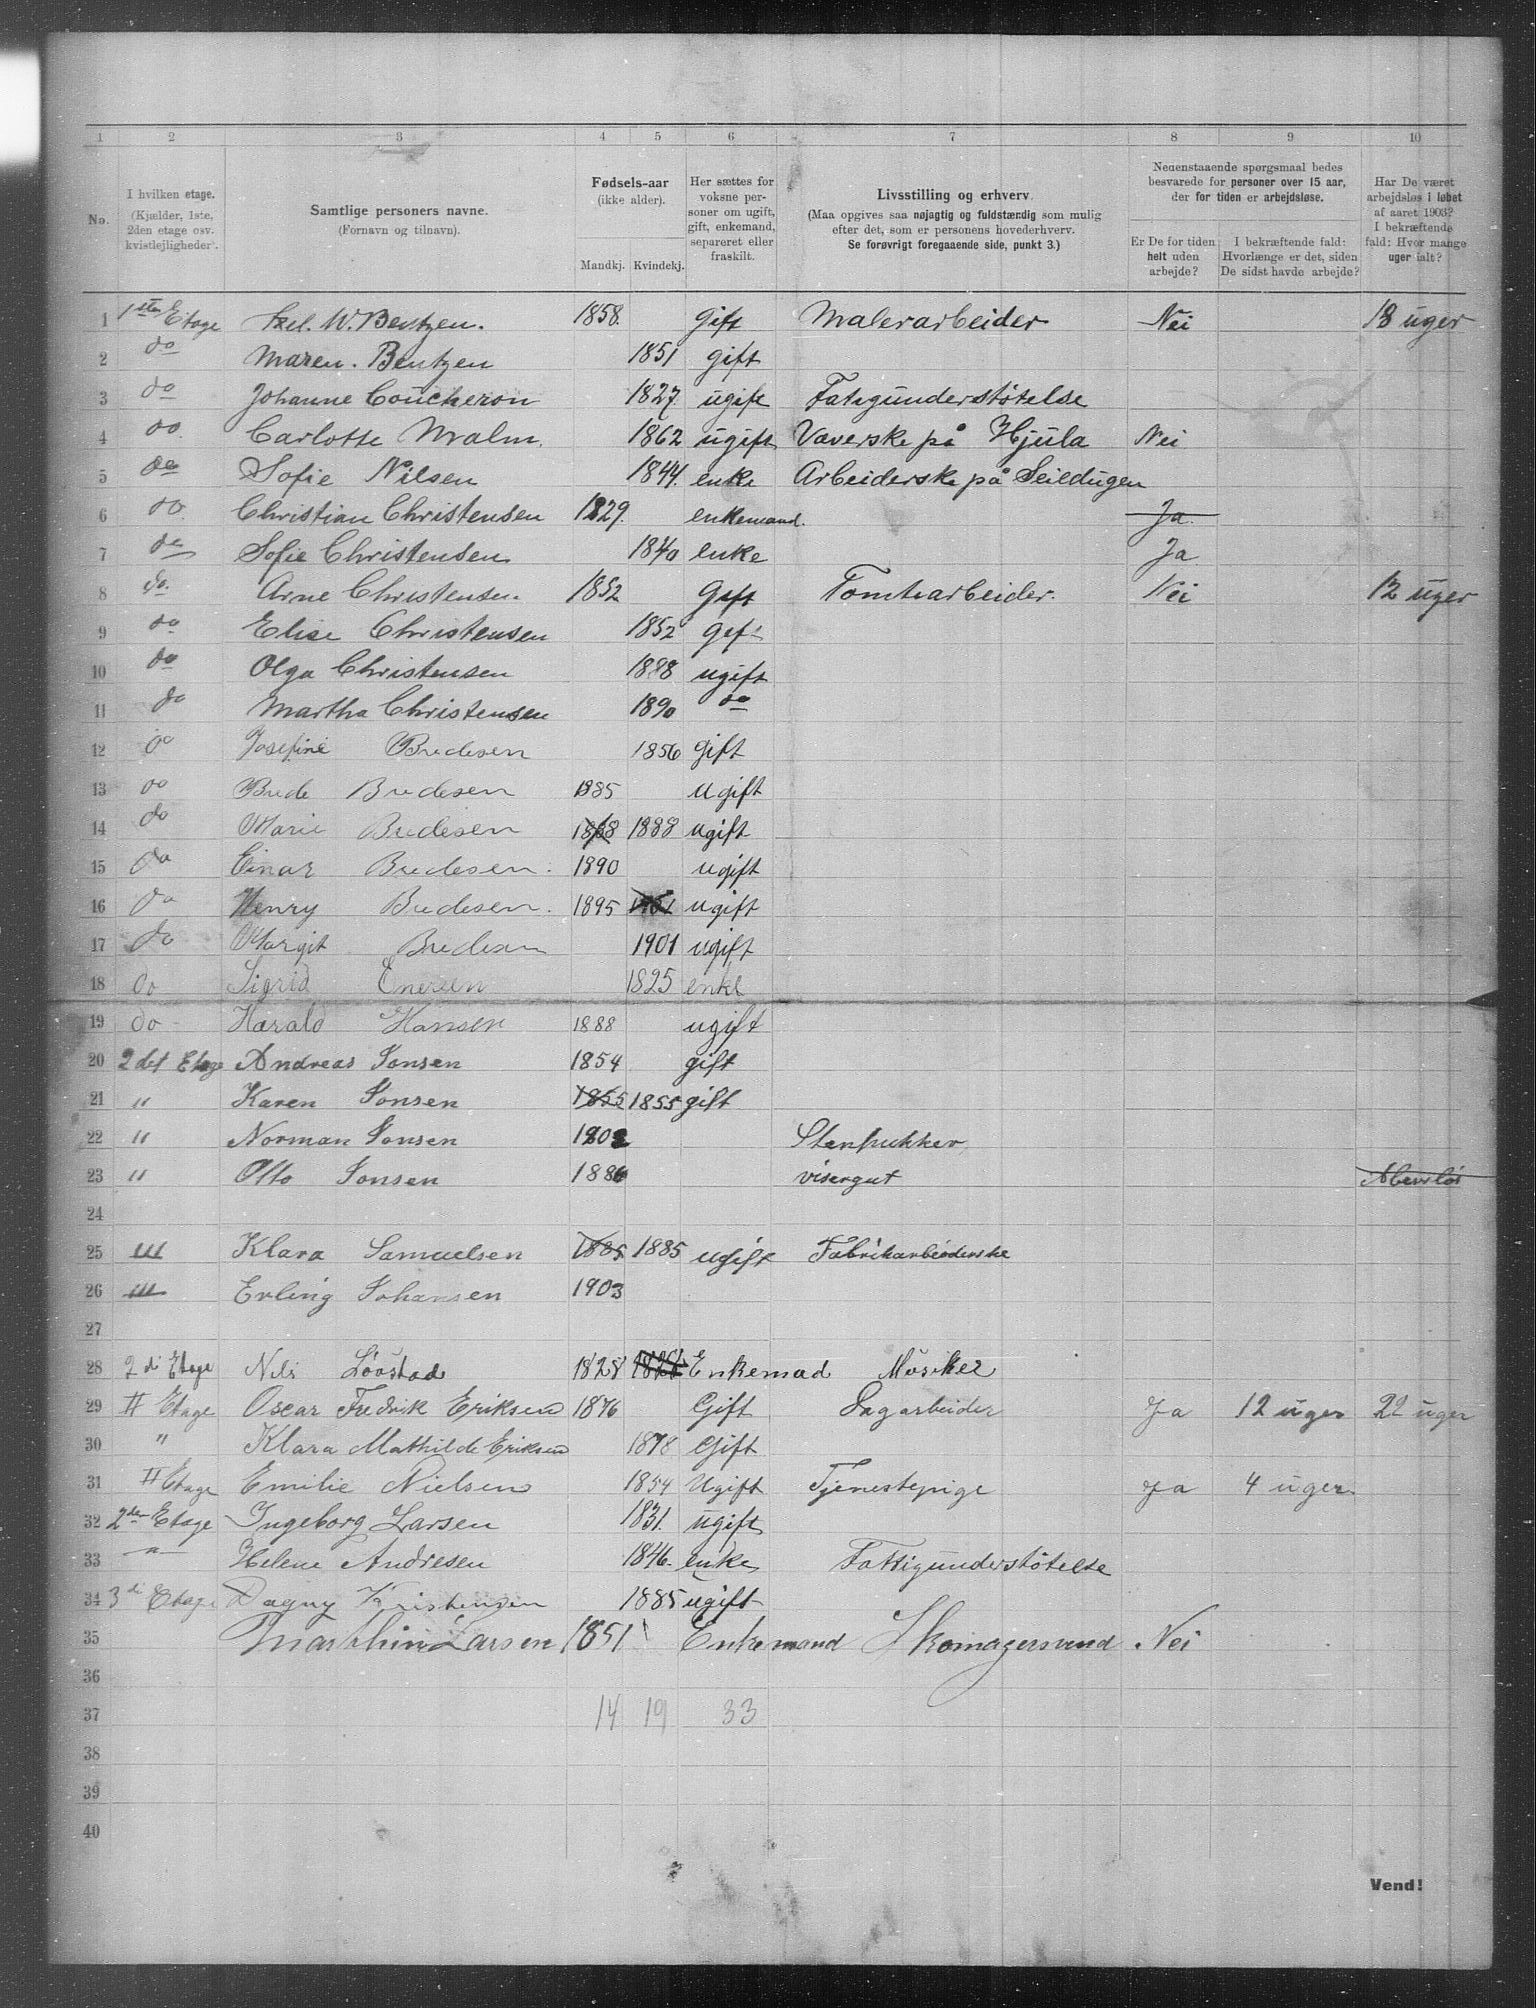 1 2 3 4 5 6 7 8 9 10
No.
I hvilken etage. (Kjælder, 1ste, 2den etage osv. kvistlejligheder).
Samtlige personers navne. (Fornavn og tilnavn).
Fødsels-aar (ikke alder).
Mandkj. Kvindekj.
Her sættes for voksne personer om ugift, gift, enkemand, separeret eller fraskilt.
Livsstilling og erhverv.
(Maa opgives saa nøjagtig og fuldstændig som mulig efter det, som er personens hovederhverv.
Se forøvrigt foregaaende side, punkt 3.)
Nedenstaaende spørgsmaal bedes besvarede for personer over 15 aar, der for tiden er arbejdsløse.
Er De for tiden helt uden arbejde?
I bekræftende fald: Hvorlænge er det, siden De sidst havde arbejde?
Har De været arbejdsløs i løbet af aaret 1903? I bekræftende fald: Hvor mange uger ialt?
1 1ste Etage W. Bentzen. 1858. Gift Malerarbeider Nei 18 uger
2 do Maren. Bentzen 1851 gift
3 do Johanne Coucheron 1827. ugift Fatigunderstötelse
4 do Carlotte Malm. 1862 ugift Væverske på Hjula Nei
5 do Sofie Nilsen 1844. enke Arbeiderske på Seildugen
6 do Christian Christensen 1829. enkemand. Ja
7 do Sofie Christensen 1840 enke Ja
8 do. Arne Christensen 1852 Gift Tomtearbeider. Nei 12 uger
9 do Elise Christensen 1852 Gift
10 do Olga Christensen 1888 ugift
11 do Martha Christensen 1890 do
12 do Josefine Bredesen 1856 gift
13 do Brede Bredesen 1885 ugift
14 do Marie Bredesen 1888 1888 ugift
15 do Einar Bredesen. 1890 ugift
16 do Henry Bredesen. 1895 1901 ugift
17 do Margit Bredesen 1901 ugift
18 do Sigrid 1825 enke
19 do Harald Hansen 1888 ugift
20 2det Etage Andreas Jonsen 1854 gift
21 " Karen Jonsen 1855 1855 gift
22 " Norman Jonsen 1902 Stenpukker
23 " Otto Jonsen 1886 visergut
24
25 Klara Samuelsen 1885 1885 ugift Fabrikarbeiderske
26 Erling Johansen 1903
27
28 2di Etage Nils Lövstad 1828 1828 Enkemad Musiker
29 II Etage Oscar Fredrik Eriksen 1876 Gift Dagarbeider Ja 12 uger 22 uger
30 " Klara Mathilde Eriksen 1878 Gift
31 II Etage Emilie Nielsen 1854 Ugift Tjenestepige Ja 4 uger.
32 2den Etage Ingeborg Larsen 1831. ugift
33 " Helene Andresen 1846. enke Fattigunderstötelse
34 3di Etage Dagny Kristensen 1885 ugift
35 Marthin Larsen 1851 Enkemand Skomagersvend Nei
36
37 14 19 33
38
39
40
Vend!